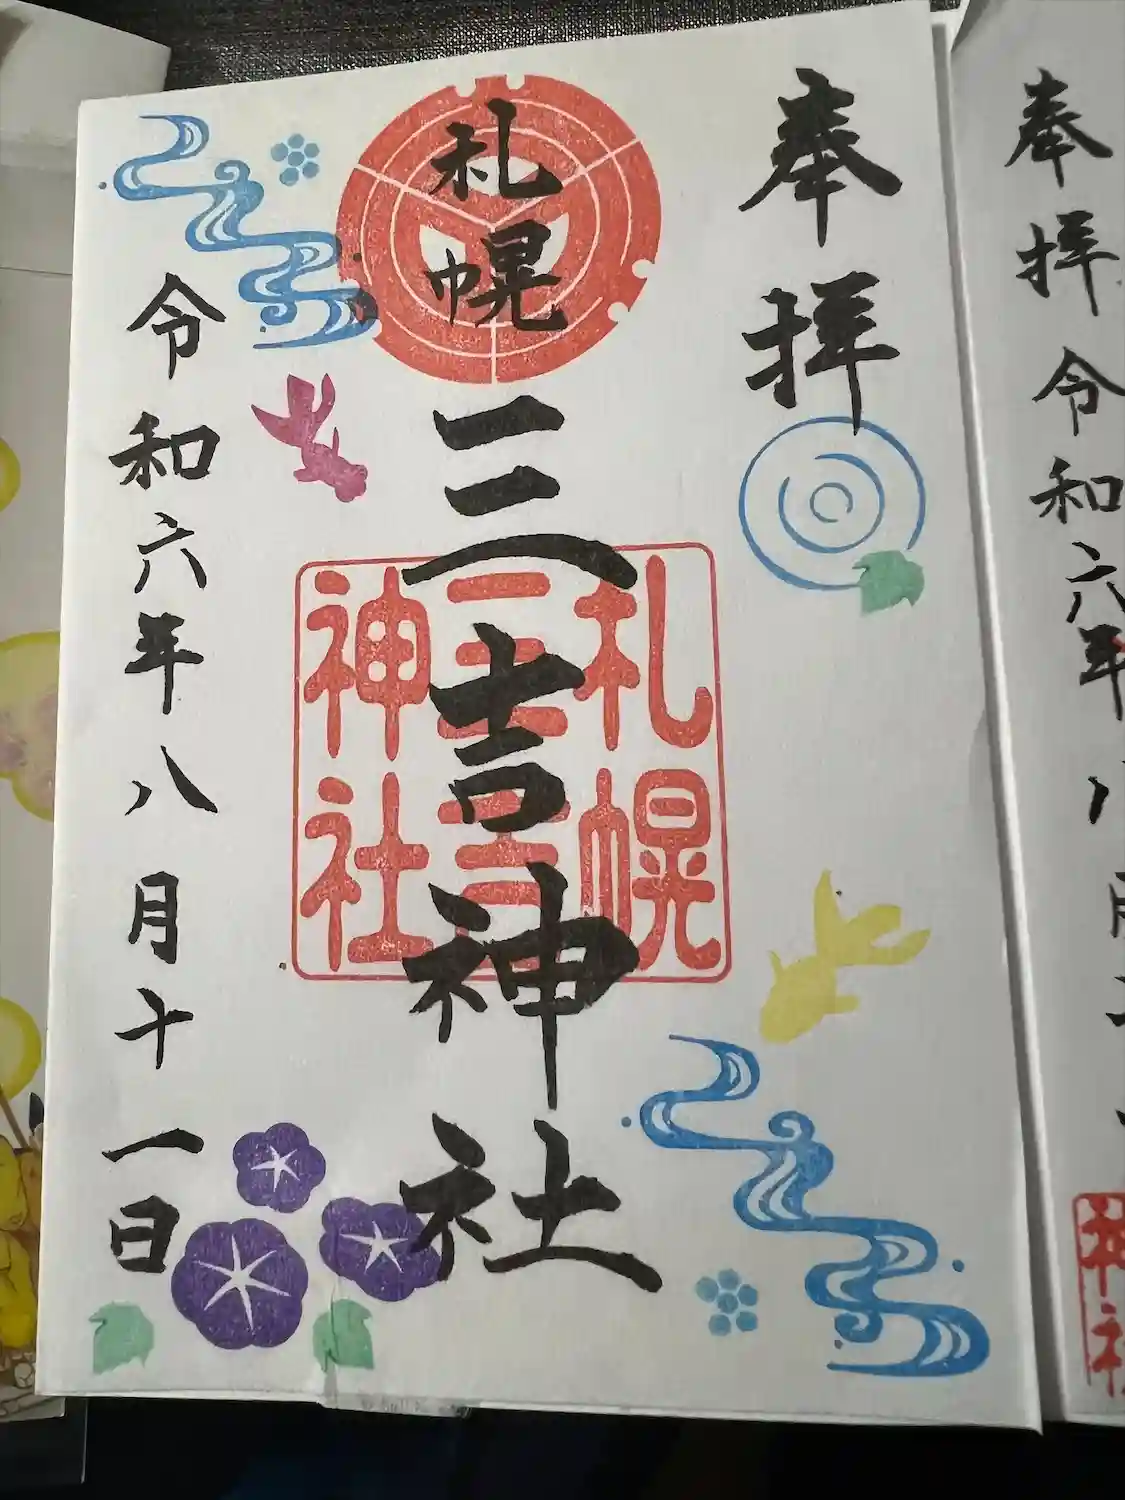 奉拝令和六年
神社
奉拝
札幌三吉神社
札幌
三吉
神社
令和六年八月十一日